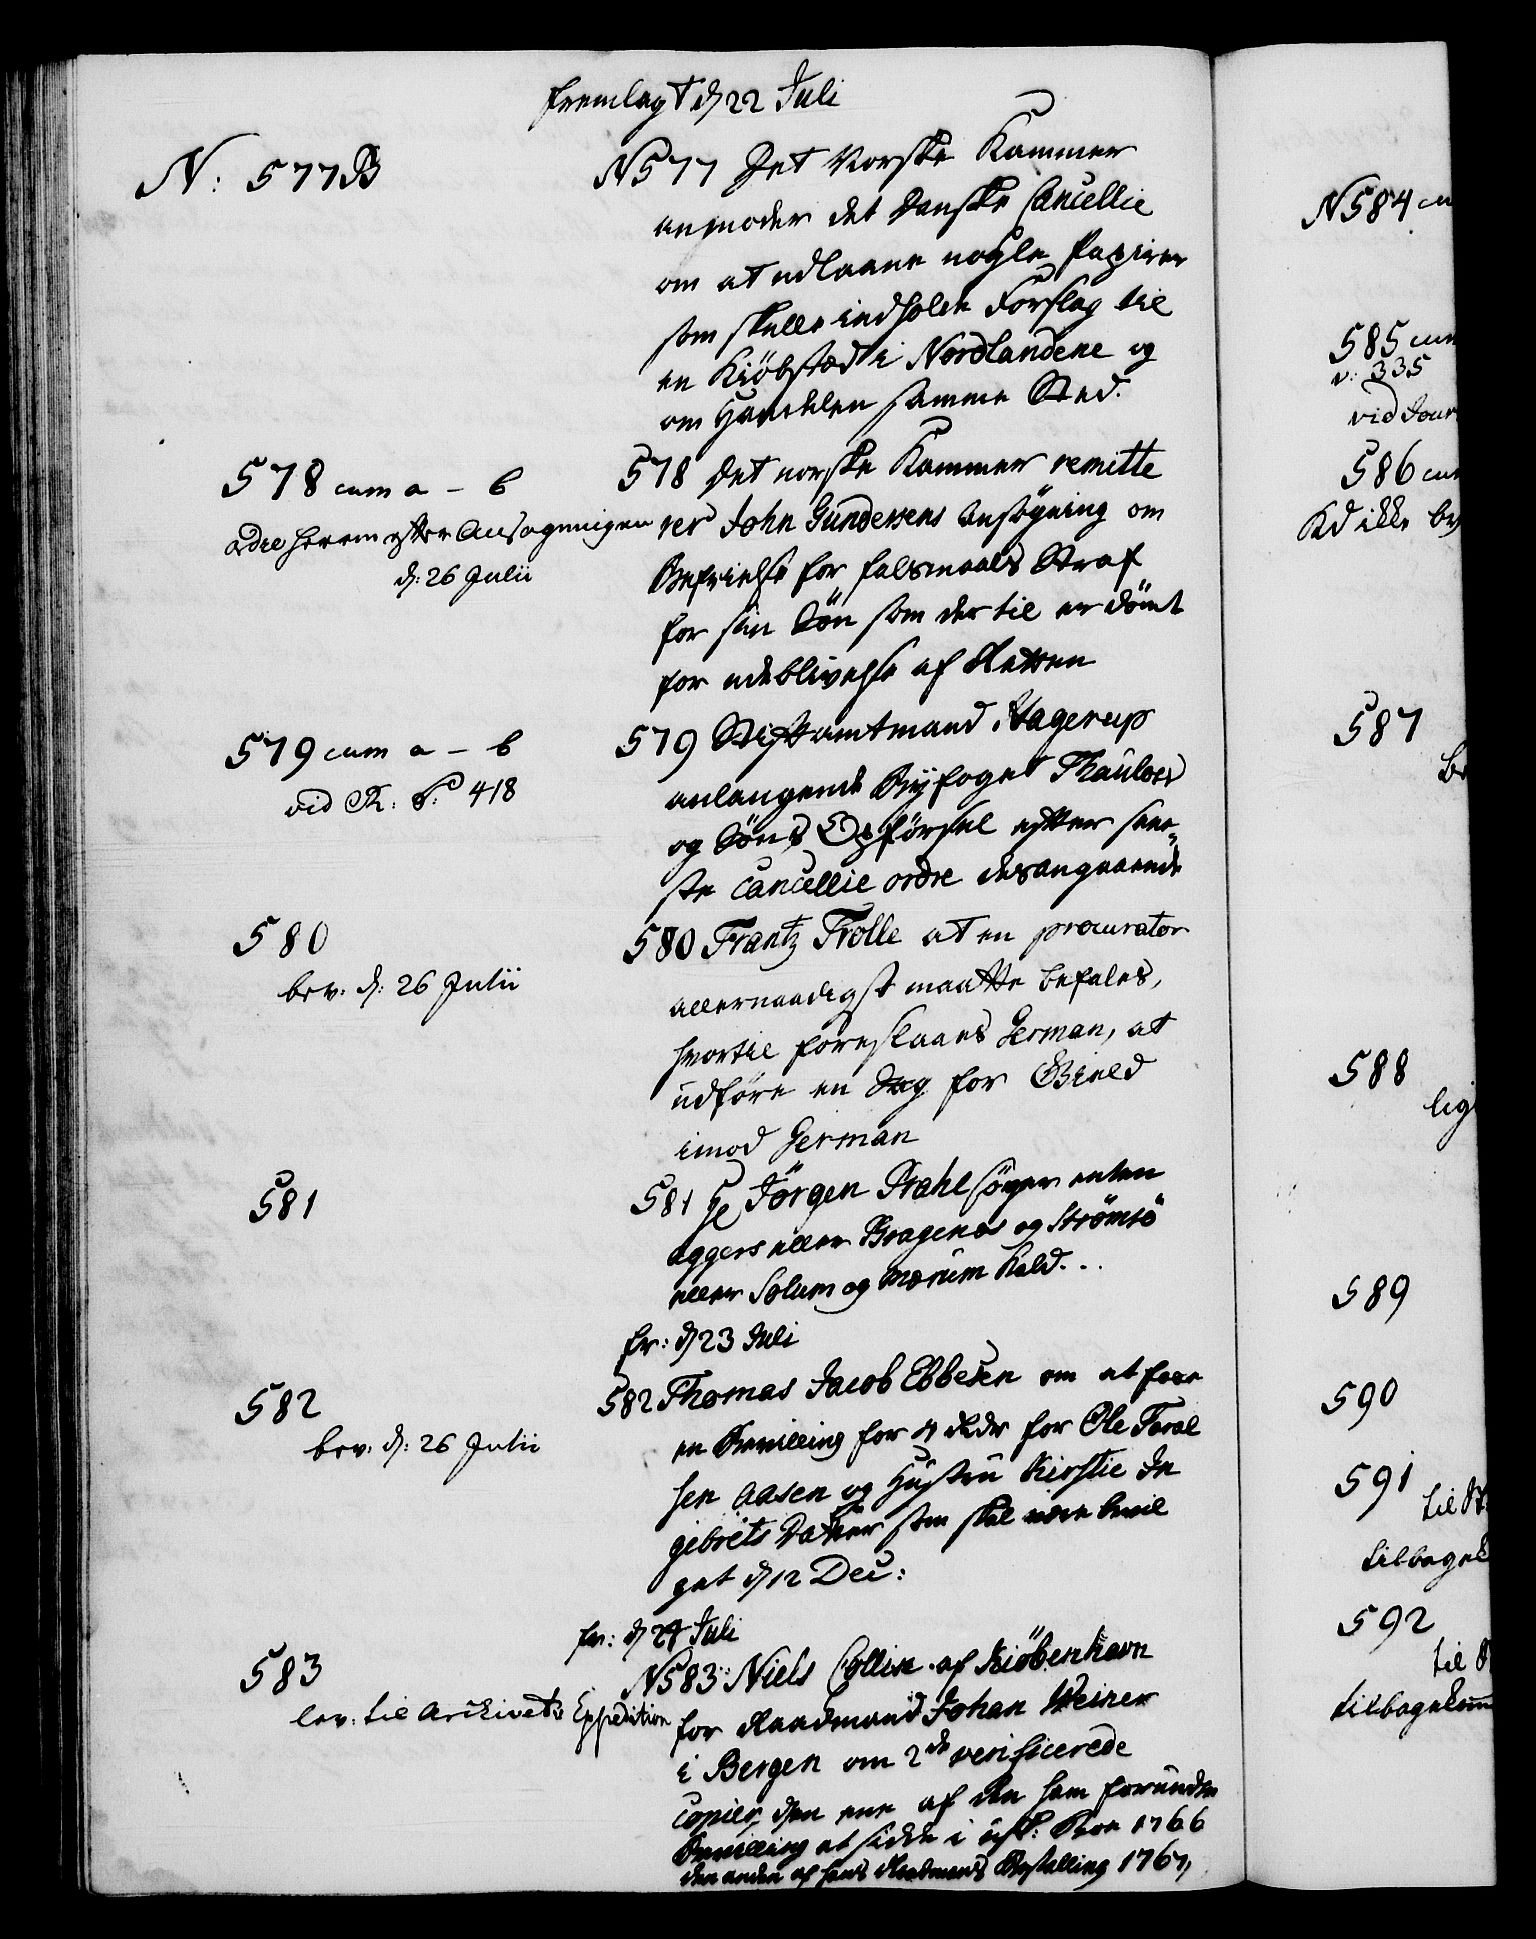 fremlagt d 22 Juli
N: 577B
N577 Det Norske Kammer
anmoder det Danske Cancellie
om at udlaane nogle Papirer
som skulle indholde Forslag til
en Kiöbstæd i Nordlandene og
om Handelen samme Sted.
578 cum a - b
ordre herom efter Ansøgningen
d: 26 Julii
578 Det norske Kammer remitte
rer John Gundersens Ansøgning om
Befrielse for falsmaals Straf
for sin Sön som der til er dömt
for udeblivelse af Retten
579 cum a - b
vid R: S: 418
579 Stiftamtmand Hagerup
anlangende Byfoget Thaulows
og Söns Opförsel efter sene-
ste Cancellie ordre desangaaende
580
bev. d: 26 Julii
580 Frantz Trolle at en procurator
allernaadigst maatte befales,
hvortil foreslaaes German, at
udföre en Sag for Gield
imod German
581
581 Hr Jörgen Prahl söger enten
Eggers eller Bragenes og Strömsö
eller Solum og Mærum Kald...
fr: d 23 Juli
582
bev. d: 26 Julii
582 Thomas Jacob Ebbesen om at faae
en Bevilling for 4 rdr for Ole Taral
sen Aasen og Hustru Kirstie In
gibrets Datter som skal være bevil
get d 12 Dec:
fr: d 24 Juli
583
lev: til Archivets Expedition
N583: Niels Collin af Kiöbenhavn
for Raadmand Johan Weiner
i Bergen om 2de verificerede
Copier, den ene af den ham forundte
Bevilling at sidde i usk: Boe 1766
den anden af hans Raadmands Bestalling 1767,
N584
585
v: 335
vid Jour
586
Kd ikke
587
588
589
590
591
592